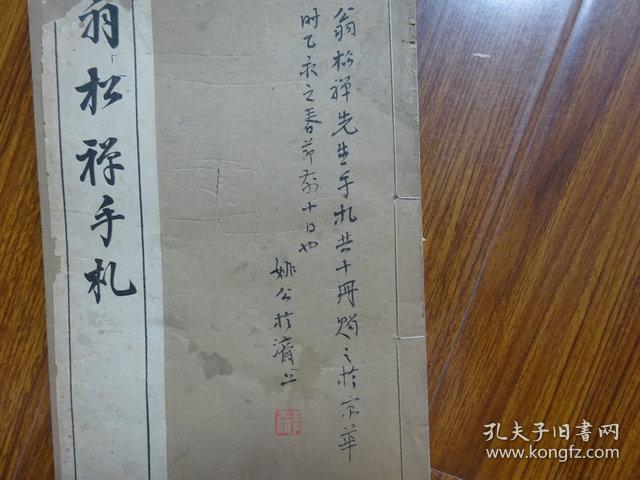 翁松禅手札
翁松禅先生手札共十册购之於京华
时乙亥之春节前十日也
姚公於济上
孔夫子旧书网
www.kongfz.com